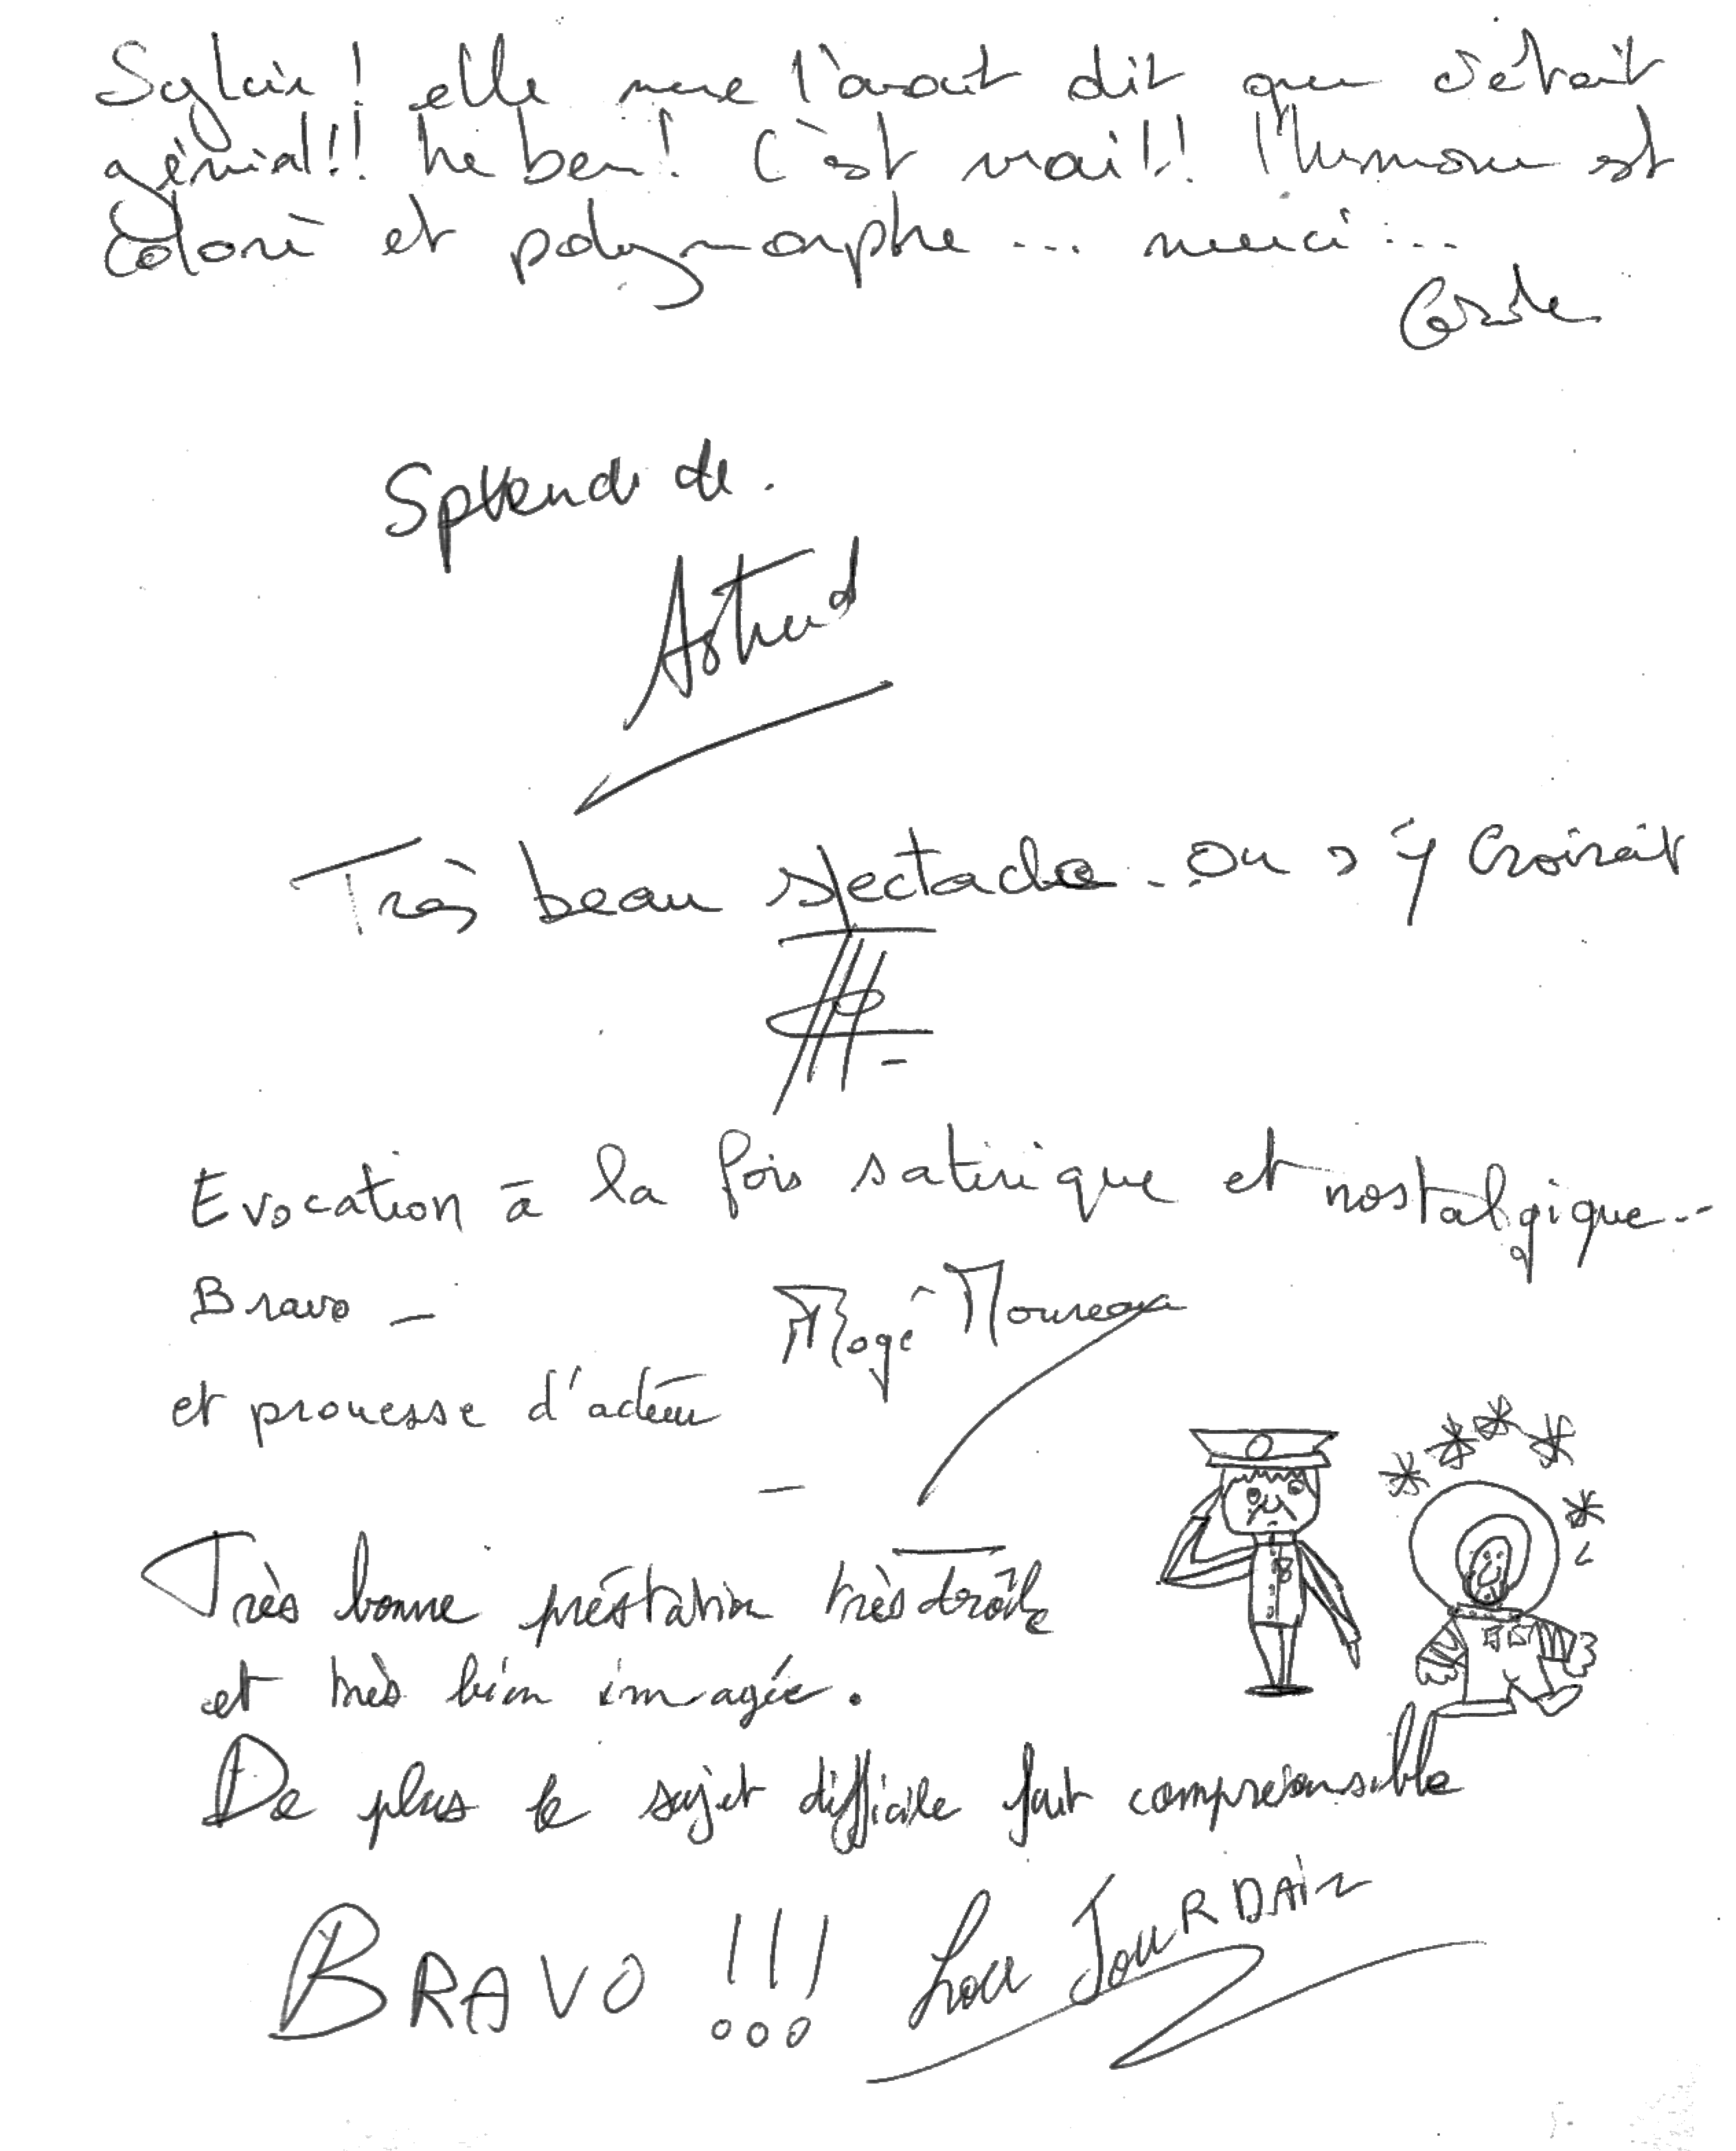 elle me l'avait dit que c'était
génial!! he ben! C'est vrai!! l'humour est
coloré et polymorphe... merci...
Splendide.
Astrid
Très beau spectacle. On s'y croirait
Evocation à la fois satirique et nostalgique...
Bravo - Rogé Moureaux
et prouesse d'acteur
Très bonne préstation très drôle
et très bien imagée.
De plus le sujet difficile fait compreonsible
BRAVO !!! Lou JOURDAIN